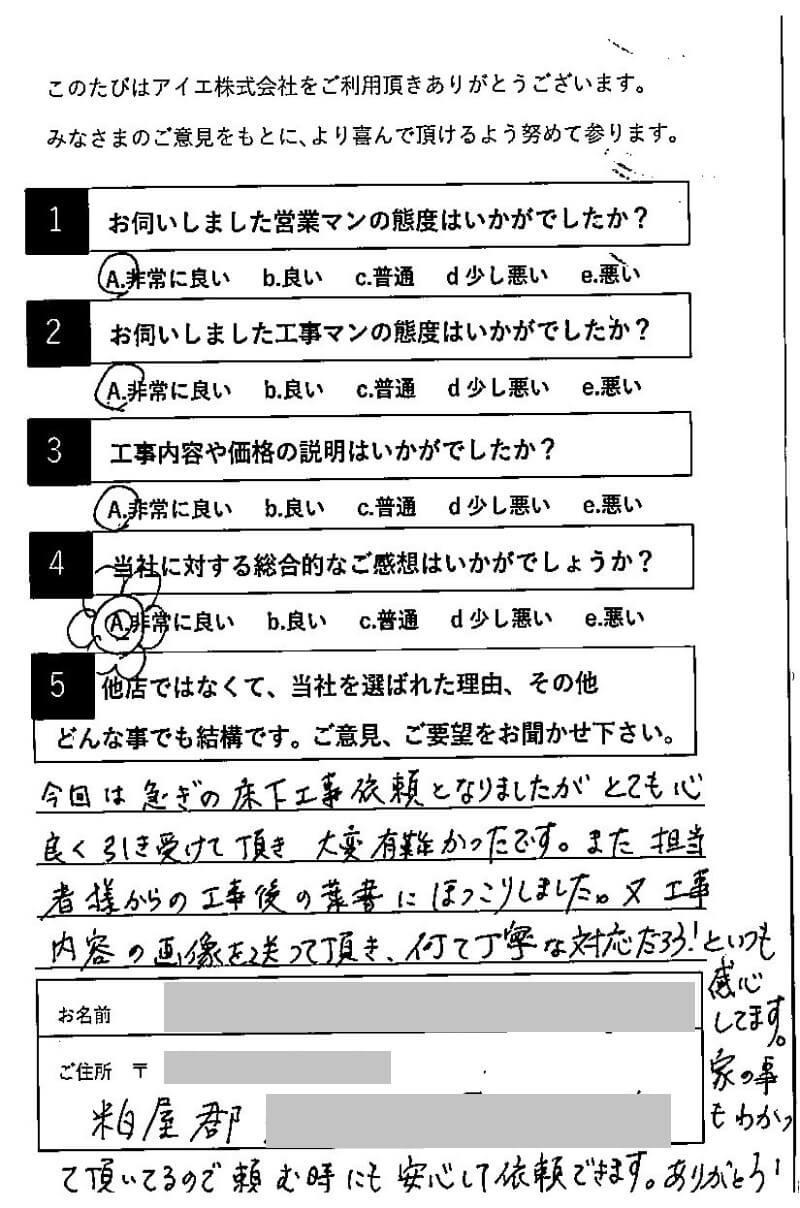 このたびはアイエ株式会社をご利用頂きありがとうございます。
みなさまのご意見をもとに、より喜んで頂けるよう努めて参ります。
1 お伺いしました営業マンの態度はいかがでしたか？
A.非常に良い b.良い c.普通 d 少し悪い e.悪い
2 お伺いしました工事マンの態度はいかがでしたか？
A.非常に良い b.良い c.普通 d 少し悪い e.悪い
3 工事内容や価格の説明はいかがでしたか？
A.非常に良い b.良い c.普通 d 少し悪い e.悪い
4 当社に対する総合的なご感想はいかがでしょうか？
A.非常に良い b.良い c.普通 d 少し悪い e.悪い
5 他店ではなくて、当社を選ばれた理由、その他
どんな事でも結構です。ご意見、ご要望をお聞かせ下さい。
今回は急ぎの床下工事依頼となりましたがとても心
良く引き受けて頂き 大変有難かったです。また担当
者様からの工事後の葉書にほっこりしました。又工事
内容の画像を送って頂き、何て丁寧な対応だろう!といつも
感心
してます。
家の事
もわかっ
て頂いてるので頼む時にも安心して依頼できます。ありがとう!
お名前
ご住所 〒
粕屋郡